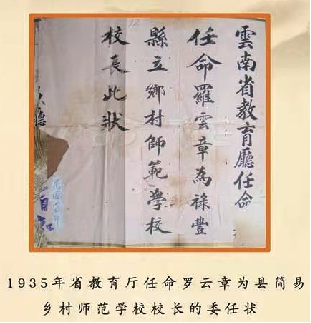 雲南省教育廳任命
任命羅雲章為祿豐
縣立鄉村師範學校
校長此狀
1935年省教育厅任命罗云章为县简易
乡村师范学校校长的委任状